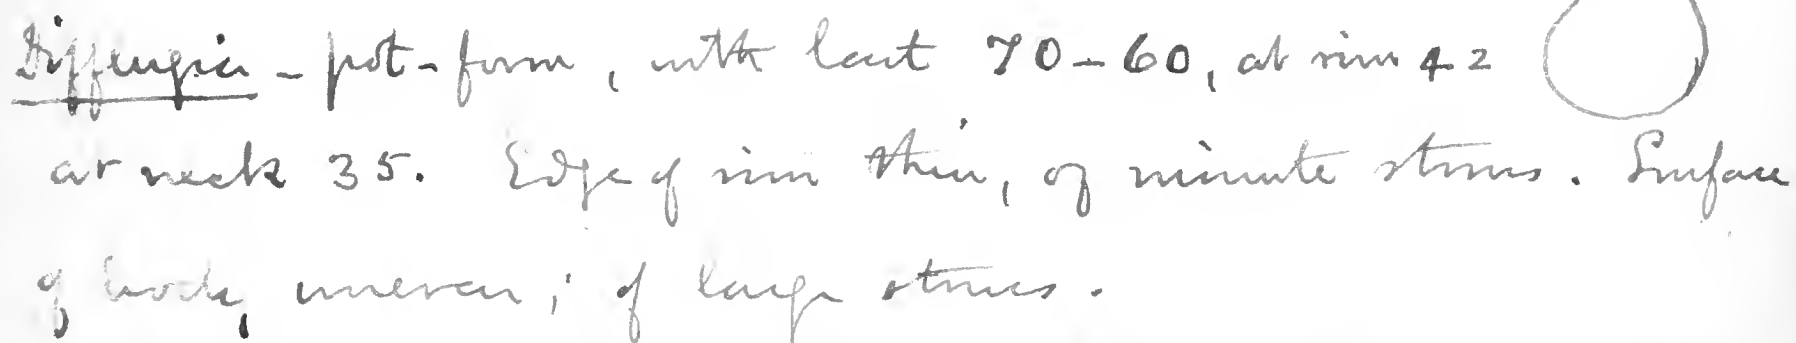 Difflugia - pot-form, with 70-60, at rim 42
at neck 35. Edge of rim thin, of minute stones. Surface
of body uneven; of large stones.